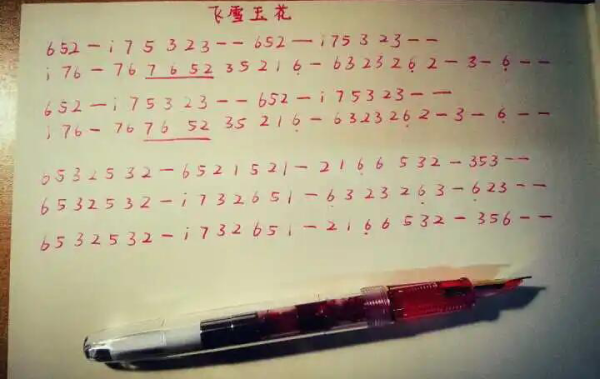 飞雪玉花
652－i75323－－652－i75323－－
i76－76765235216̣－632326̣2－3－6̣－－
652－i75323－－652－i75323－－
i76－76765235216̣－632326̣2－3－6̣－－
6532532－6521521－216̣6̣532－353－－
6532532－i732651－6̣32326̣3－6̣23－－
6532532－i732651－216̣6̣532－356－－